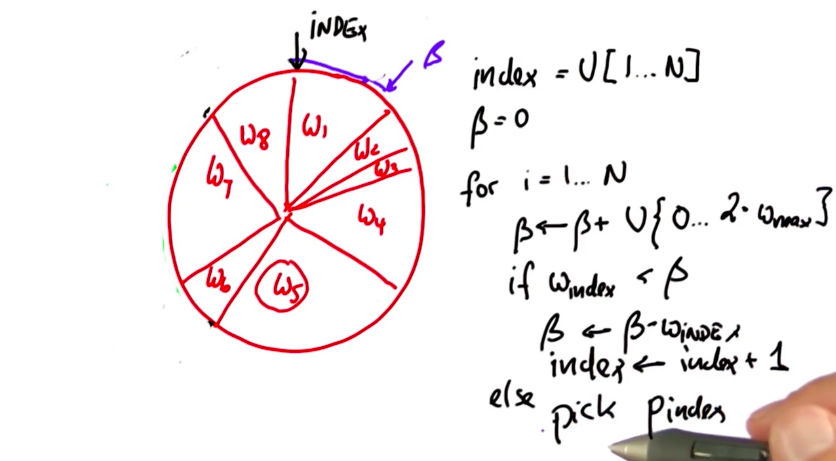 INDEX
β
ω1
ω2
ω3
ω4
ω5
ω6
ω7
ω8
index = U[1...N]
β=0
for i=1... N
β←β+ U{0... 2·ωmax}
if ωindex < β
β ← β-ωINDEX
index ← index + 1
else pick pindex